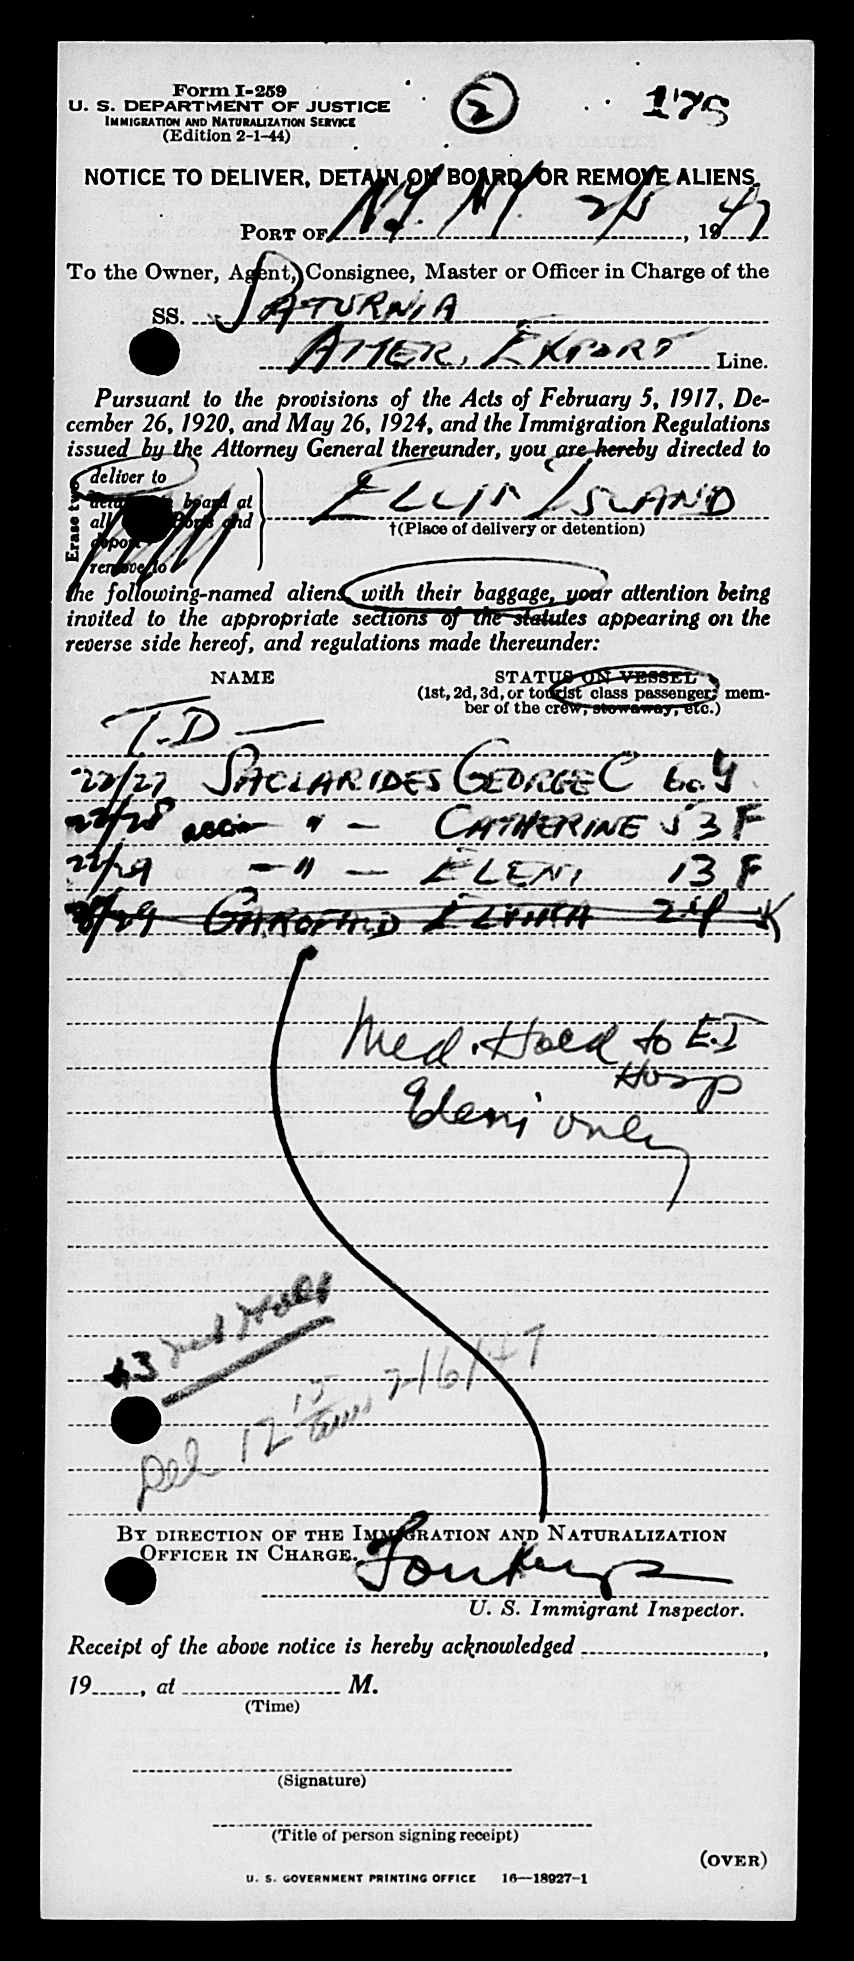 Form I-259
U. S. DEPARTMENT OF JUSTICE
IMMIGRATION AND NATURALIZATION SERVICE
(Edition 2-1-44)
2
175
NOTICE TO DELIVER, DETAIN ON BOARD, OR REMOVE ALIENS
PORT OF N.Y. N.Y. 2/5, 1947
To the Owner, Agent, Consignee, Master or Officer in Charge of the
SS. SATURNIA
AMER. EXPORT Line.
Pursuant to the provisions of the Acts of February 5, 1917, De-
cember 26, 1920, and May 26, 1924, and the Immigration Regulations
issued by the Attorney General thereunder, you are hereby directed to
Erase two
deliver to
board at
all ports and
remove to
ELLIS ISLAND
†(Place of delivery or detention)
the following-named aliens, with their baggage, your attention being
invited to the appropriate sections of the statutes appearing on the
reverse side hereof, and regulations made thereunder:
NAME
STATUS ON VESSEL
(1st, 2d, 3d, or tourist class passenger; mem-
ber of the crew, stowaway, etc.)
T.D —
22/27 SACLARIDES GEORGE C 60 Y
22/28 " — CATHERINE 53 F
22/29 — " — ELENI 13 F
29 GAROFALO 24
Med. Hold to E.I
Hosp
Eleni only
Med Hold
Del 12 15 am 2/6/47
BY DIRECTION OF THE IMMIGRATION AND NATURALIZATION
OFFICER IN CHARGE.
U. S. Immigrant Inspector.
Receipt of the above notice is hereby acknowledged ,
19 , at M.
(Time)
(Signature)
(Title of person signing receipt)
(OVER)
U. S. GOVERNMENT PRINTING OFFICE 16—18927-1